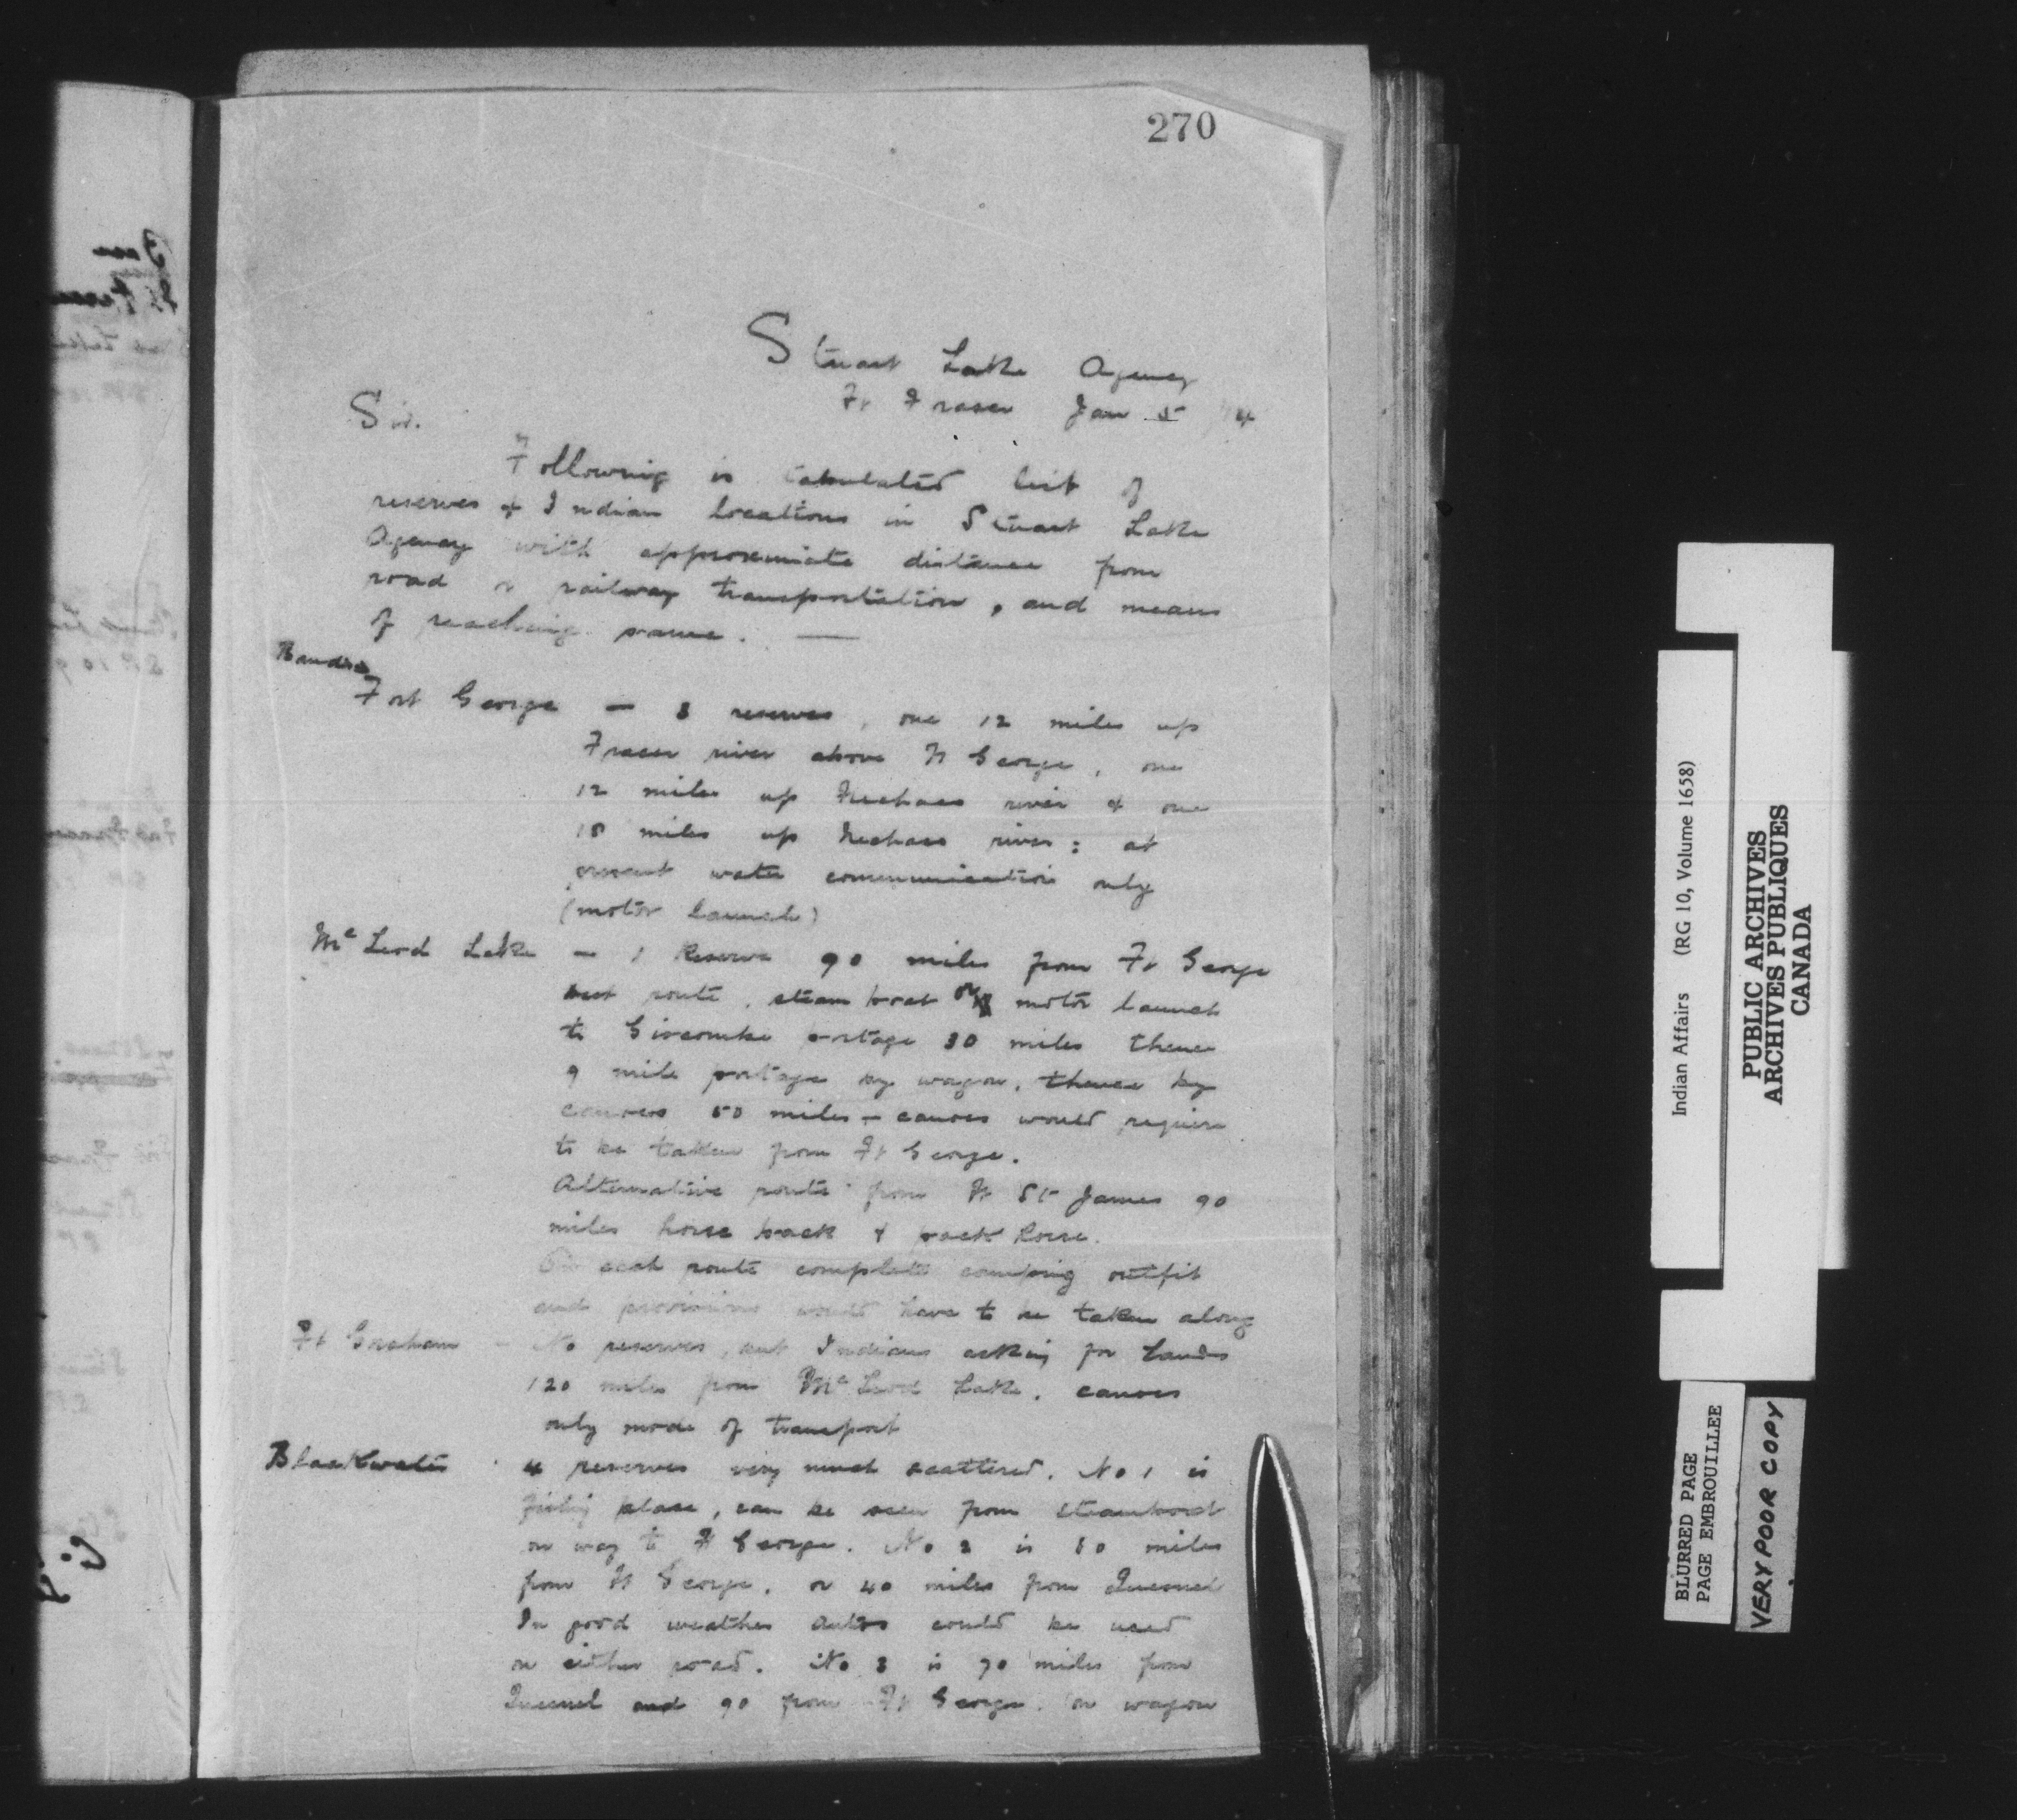 270
Stuart Lake Agency
Ft Fraser Jan 5 14
Sir.
Following is tabulated list of
reserves & Indian locations in Stuart Lake
Agency with approximate distance from
road or railway transportation, and means
of reaching same. —
Bands
Fort George — 3 reserves, one 12 miles up
Fraser river above Ft George, one
12 miles up Nechaco river & one
18 miles up Nechaco river: at
present water communication only
(motor launch)
McLeod Lake — 1 Reserve 90 miles from Ft George
best route, steam boat or motor launch
to Giscombe portage 30 miles thence
9 mile portage by wagon, thence by
canoes 50 miles — canoes would require
to be taken from Ft George.
Alternative route from Ft St James 90
miles horse back & pack horse.
On each route complete camping outfit
and provisions would have to be taken along
Ft Graham — No reserves, but Indians asking for lands
120 miles from McLeod Lake. canoes
only mode of transport
Blackwater . 4 reserves very much scattered. No 1 is
fishing place, can be seen from steamboat
on way to Ft George. No 2 is 50 miles
from Ft George, or 40 miles from Quesnel
In good weather autos could be used
on either road. No 3 is 70 miles from
Quesnel and 90 from Ft George. on wagon
Indian Affairs (RG 10, Volume 1658)
PUBLIC ARCHIVES
ARCHIVES PUBLIQUES
CANADA
BLURRED PAGE
PAGE EMBROUILLEE
VERY POOR COPY